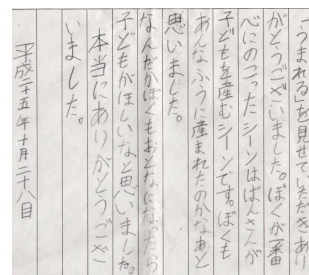 「うまれる」を見せていただきあり
がとうございました。ぼくが一番
心にのこったシーンはばんさんが
子どもを産むシーンです。ぼくも
あんなふうに産まれたのかなあと
思いました。
なんだかぼくもおとなになったら
子どもがほしいなと思いました。
本当にありがとうござ
いました。
平成二十五年十月二十八日